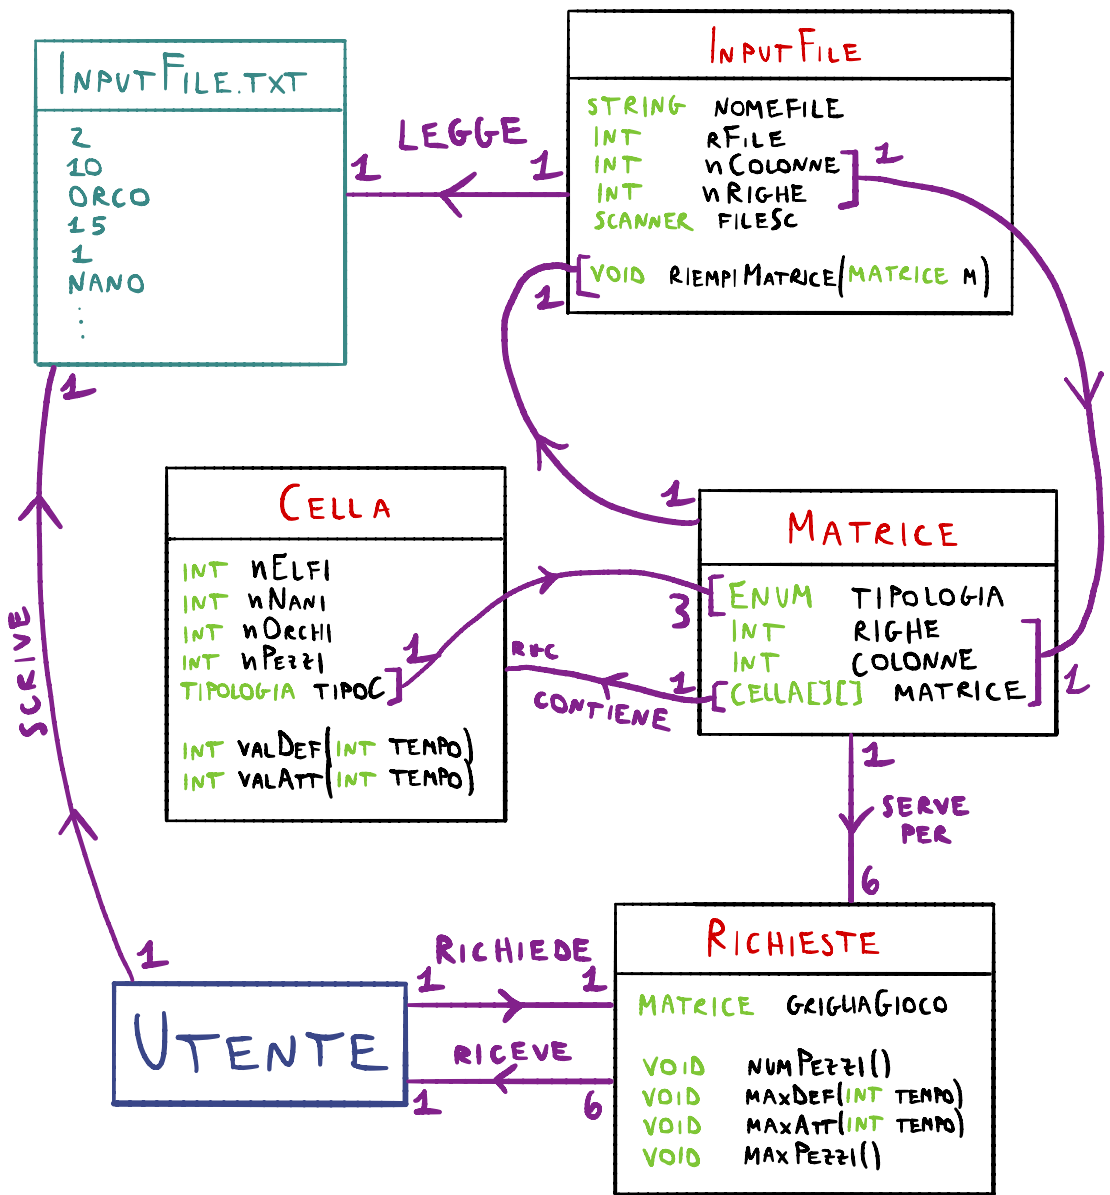 INPUTFILE.TXT
2
10
ORCO
15
1
NANO
.
.
.
LEGGE
1
1
INPUTFILE
STRING NOMEFILE
INT rFILE
INT nCOLONNE
INT nRIGHE
SCANNER FILESC
VOID RIEMPIMATRICE(MATRICE M)
1
1
1
CELLA
INT nELFI
INT nNANI
INT nORCHI
INT nPEZZI
TIPOLOGIA TIPOC
INT VALDEF(INT TEMPO)
INT VALATT(INT TEMPO)
1
3
CONTIENE
1
1
MATRICE
ENUM TIPOLOGIA
INT RIGHE
INT COLONNE
CELLA[][] MATRICE
1
1
SERVE
PER
6
SCRIVE
1
UTENTE
RICHIEDE
1
1
RICEVE
1
6
RICHIESTE
MATRICE GRIGLIAGIOCO
VOID NUMPEZZI()
VOID MAXDEF(INT TEMPO)
VOID MAXATT(INT TEMPO)
VOID MAXPEZZI()